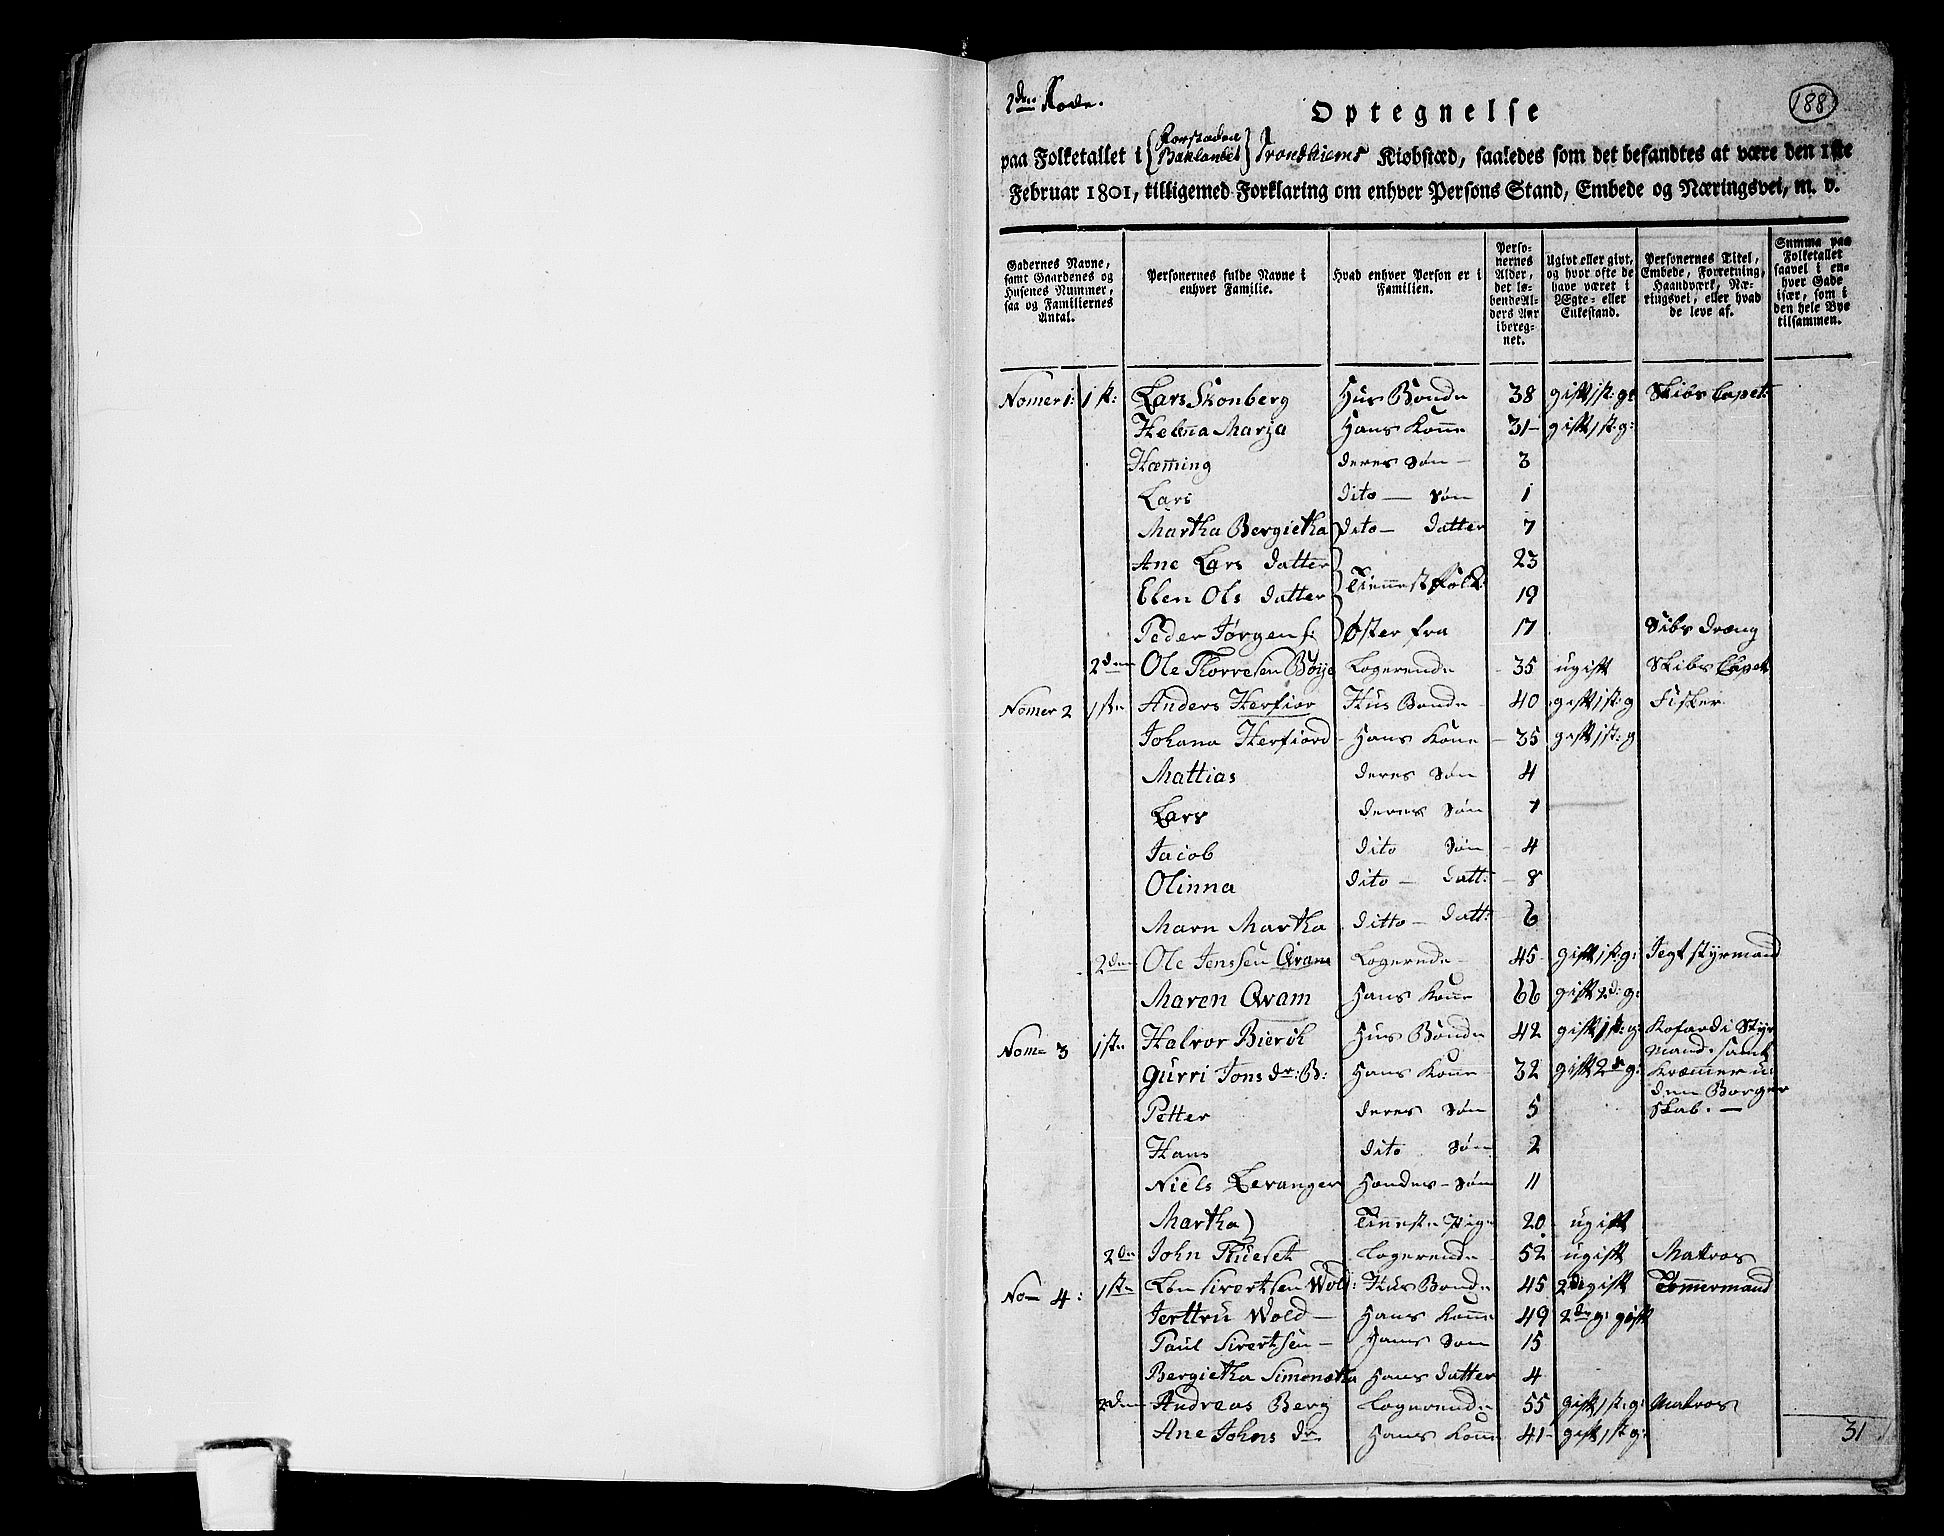 2den Rode.
188
Optegnelse
paa Folketallet i {Forstaden Baklandet} Trondhiems Kiøbstæd, saaledes som det befandtes at være den 1ste
Februar 1801, tilligemed Forklaring om enhver Persons Stand, Embede og Næringsvei, m. v.
Gadernes Navne, samt Gaardenes og Husenes Nummer, saa og Familiernes Antal.
Personernes fulde Navne i enhver Familie.
Hvad enhver Person er i Familien.
Personernes Alder, det løbende Alders Aar iberegnet.
Ugivt eller givt, og hvor ofte de have været i Ægte- eller Enkestand.
Personernes Titel, Embede, Forretning, Haandværk, Næringsvei, eller hvad de leve af.
Summa paa Folketallet saavel i enhver Gade især, som i den hele Bye tilsammen.
Nomer 1: 1st: Lars Skonberg Hus Bonde 38 gift 1st: g: Skibs Capet:
Helena Marja Hans Kone 31 gift 1st: g:
Hæming deres søn 3
Lars dito søn 1
Martha Bergietha dito datter 7
Ane Lars datter 23
Elen Ols datter Tiennest folk: 19
Peder Jørgen s: Øster fra 17 Sibs dræng
2den Ole Thorresen Böije Logerende 35 ugift Skibs Capet
Nomer 2 1ste Anders Herfior Hus Bonde 40 gift 1st: g Fisker
Johana Herfiord Hans Kone 35 gift 1st: g
Mattias deres søn 4
Lars deres søn 7
Jacob dito søn 4
Olinna dito datt: 8
Marn Martha ditto datt: 6
2den Ole Jenssen Qvam Logerende 45 gift 1st: g: Jegt styrmand
Maren Qvam Hans Kone 66 gift 2d: g:
Nom 3 1ste Halvor Bierök Hus Bonde 42 gift 1st: g: Kofardi Styr
Mand. samt
Gurri Jons dr: B: Hans Kone 32 gift 2d g: Kræmmer u:
den Borger
Petter deres søn 5 skab.
Hans dito søn 2
Niels Levanger Hendes søn 11
Martha Tienneste Pige 20 ugift
2de John Thueset Logerende 52 ugift Matros
No 4: 1ste Lön Sivertsen Wold: Hus Bonde 45 2d gift Tömermand
Jerttru Wold Hans Kone 49 2den g: gift
Paul Sivertsen Hans søn 15
Bergietha Simonetha Hans datter 4
2den Andreas Berg Logerende 55 gift 1st: g: Matros
Ane Johns dr Hans Kone 41 gift 1st g:
31